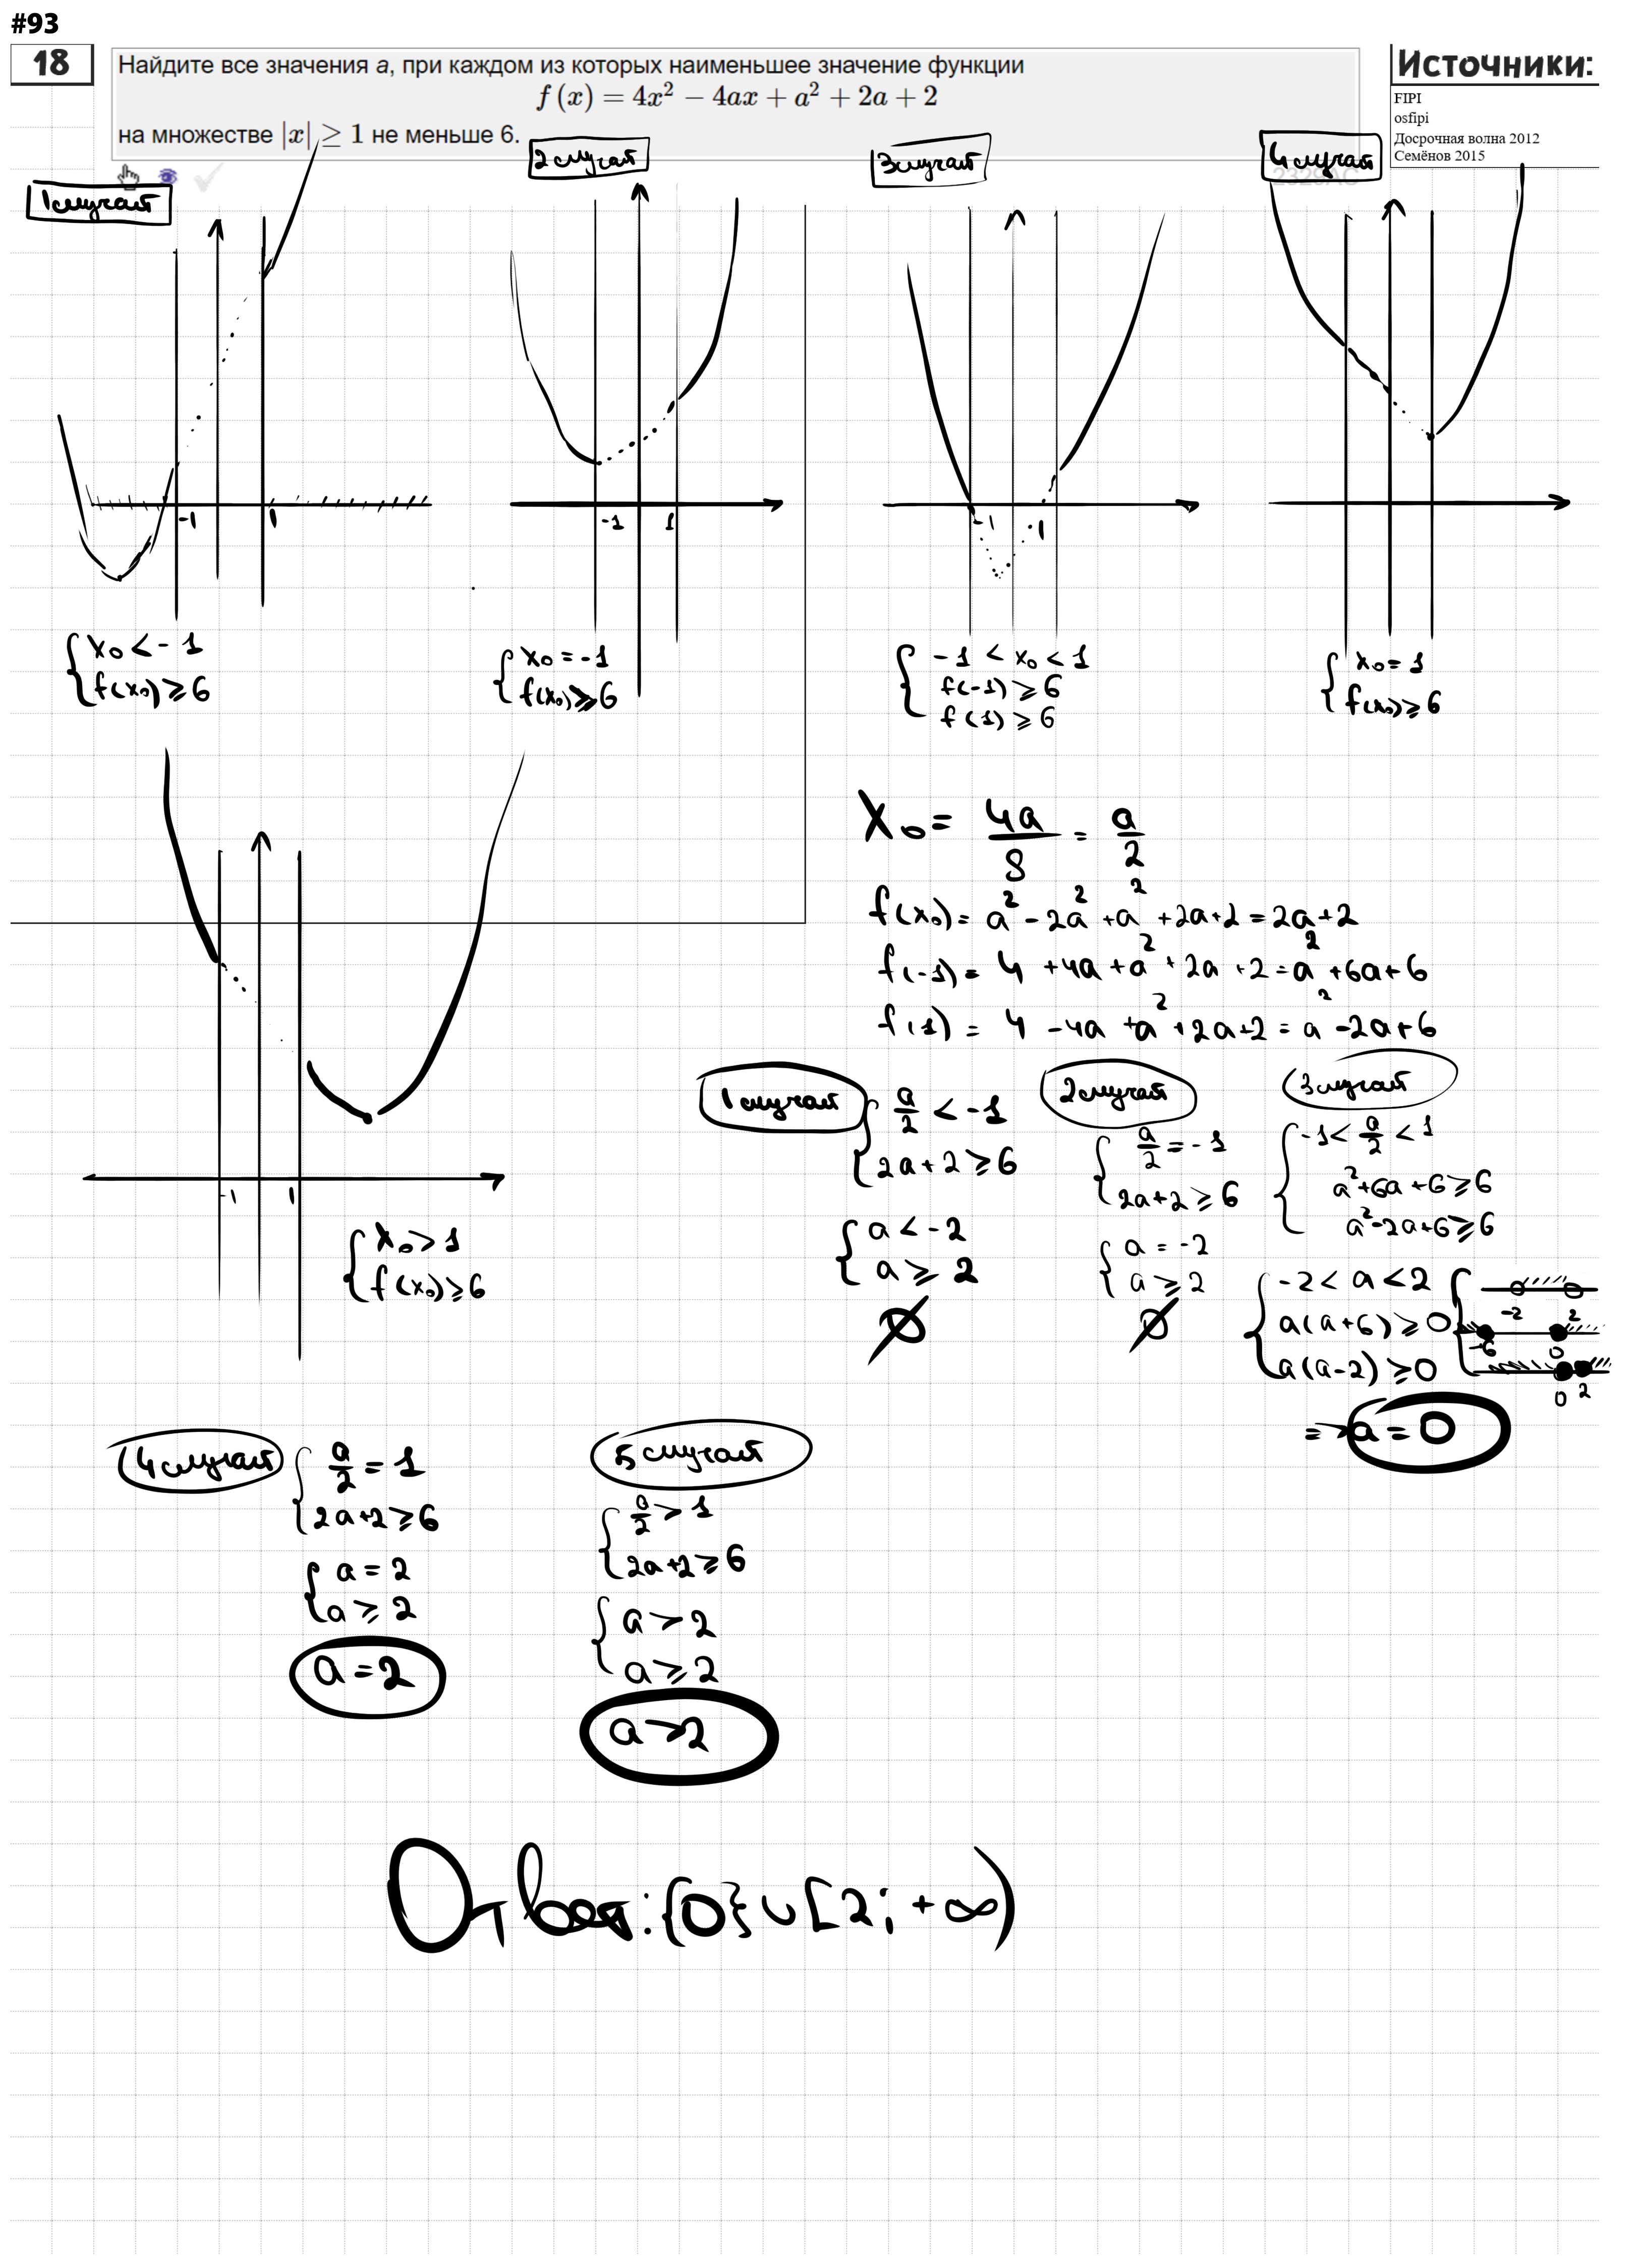 #93
18
Найдите все значения a, при каждом из которых наименьшее значение функции
f (x) = 4x² − 4ax + a² + 2a + 2
на множестве |x| ≥ 1 не меньше 6.
Источники:
FIPI
osfipi
Досрочная волна 2012
Семёнов 2015
2329AC
1 случай
2 случай
3 случай
4 случай
-1 1
-1 1
-1 1
x₀ < -1
f(x₀) ⩾ 6
x₀ = -1
f(x₀) ⩾ 6
-1 < x₀ < 1
f(-1) ⩾ 6
f(1) ⩾ 6
x₀ = 1
f(x₀) ⩾ 6
-1 1
x₀ > 1
f(x₀) ⩾ 6
x₀ = 4a/8 = a/2
f(x₀) = a² - 2a² + a² + 2a + 2 = 2a + 2
f(-1) = 4 + 4a + a² + 2a + 2 = a² + 6a + 6
f(1) = 4 - 4a + a² + 2a + 2 = a² - 2a + 6
1 случай
a/2 < -1
2a + 2 ⩾ 6
a < -2
a ⩾ 2
∅
2 случай
a/2 = -1
2a + 2 ⩾ 6
a = -2
a ⩾ 2
∅
3 случай
-1 < a/2 < 1
a² + 6a + 6 ⩾ 6
a² - 2a + 6 ⩾ 6
-2 < a < 2
a(a+6) ⩾ 0
a(a-2) ⩾ 0
-2 2
-6 0
0 2
=> a = 0
4 случай
a/2 = 1
2a + 2 ⩾ 6
a = 2
a ⩾ 2
a = 2
5 случай
a/2 > 1
2a + 2 ⩾ 6
a > 2
a ⩾ 2
a > 2
Ответ: {0} ∪ [2; +∞)